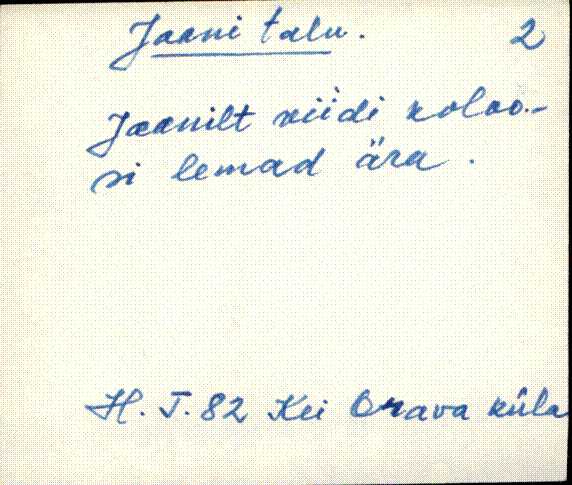 Jaani talu. 2
Jaanilt viidi koloo-
si lemad ära.
H. T. 82 Kei Orava küla